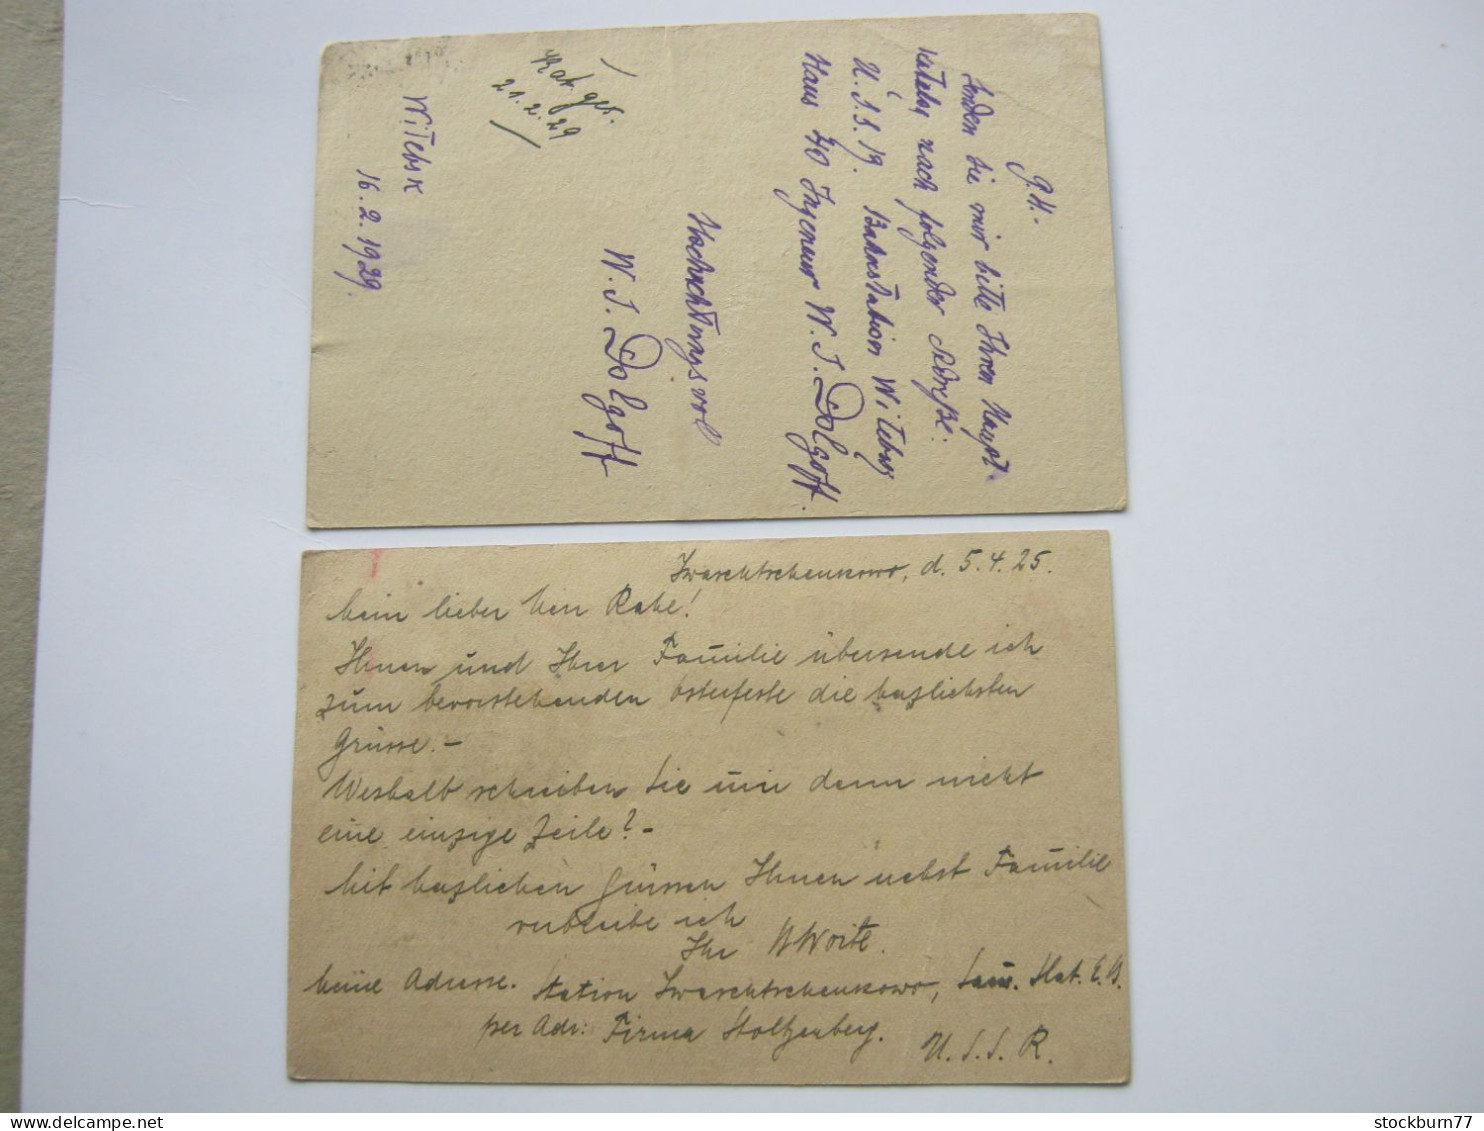 G.H.
Senden Sie mir bitte Ihren Haupt-
katalog nach folgender Adreße:
U.S.S.R. Bahnstation Witebsk
Haus 40 Ingeneur W. J. Dolgoff.
Hochachtungsvoll
W. J. Dolgoff
Kat. ges.
21.2.29
Witebsk
16.2.1929.
Iwaschtschenkowo, d. 5.4.25.
Mein lieber Herr Rabe!
Ihnen und Ihrer Familie übersende ich
zum bevorstehenden Osterfeste die herzlichsten
Grüsse.-
Weshalb schreiben Sie mir denn nicht
eine einzige Zeile?-
Mit herzlichen Grüssen Ihnen nebst Familie
verbleibe ich
Ihr
Meine Adresse. Station Iwaschtschenkowo, Sam. Slat. E.B.
per Adr: Firma Stolzenberg.
U.S.S.R.
stockburn77